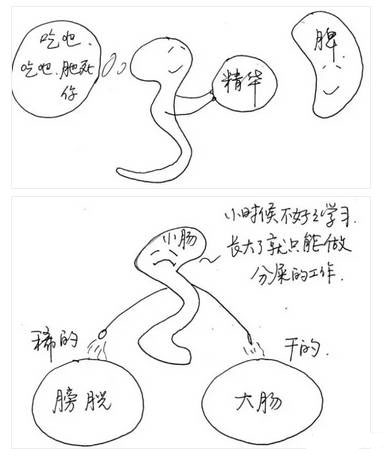 吃吧、
吃吧、肥死
你
精华
脾
小肠
小时候不好好学习.
长大了就只能做
分屎的工作.
稀的
干的.
膀胱
大肠